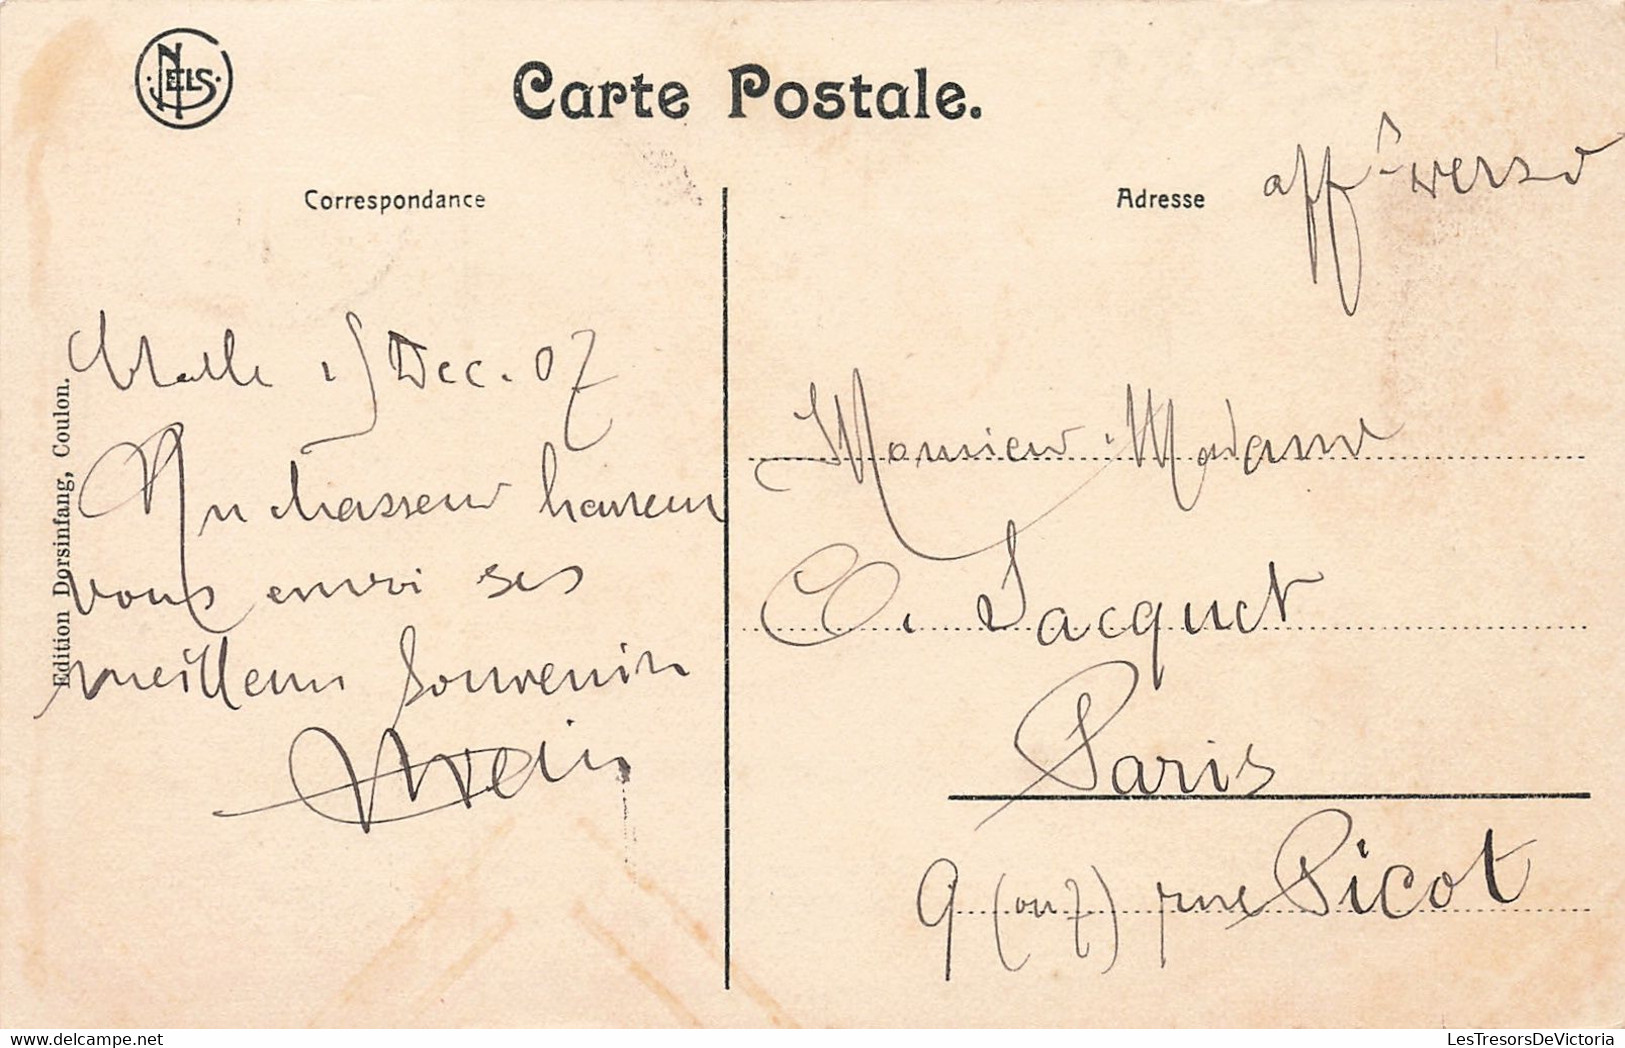 NELS
Carte Postale.
Correspondance
Adresse
afft verso
15 Dec. 07
Un chasseur heureux
vous envoi ses
meilleurs souvenirs
Edition Dorsinfang, Coulon.
Monsieur Madame
C. Jacquet
Paris
9 (ou 7) rue Picot
LesTresorsDeVictoria